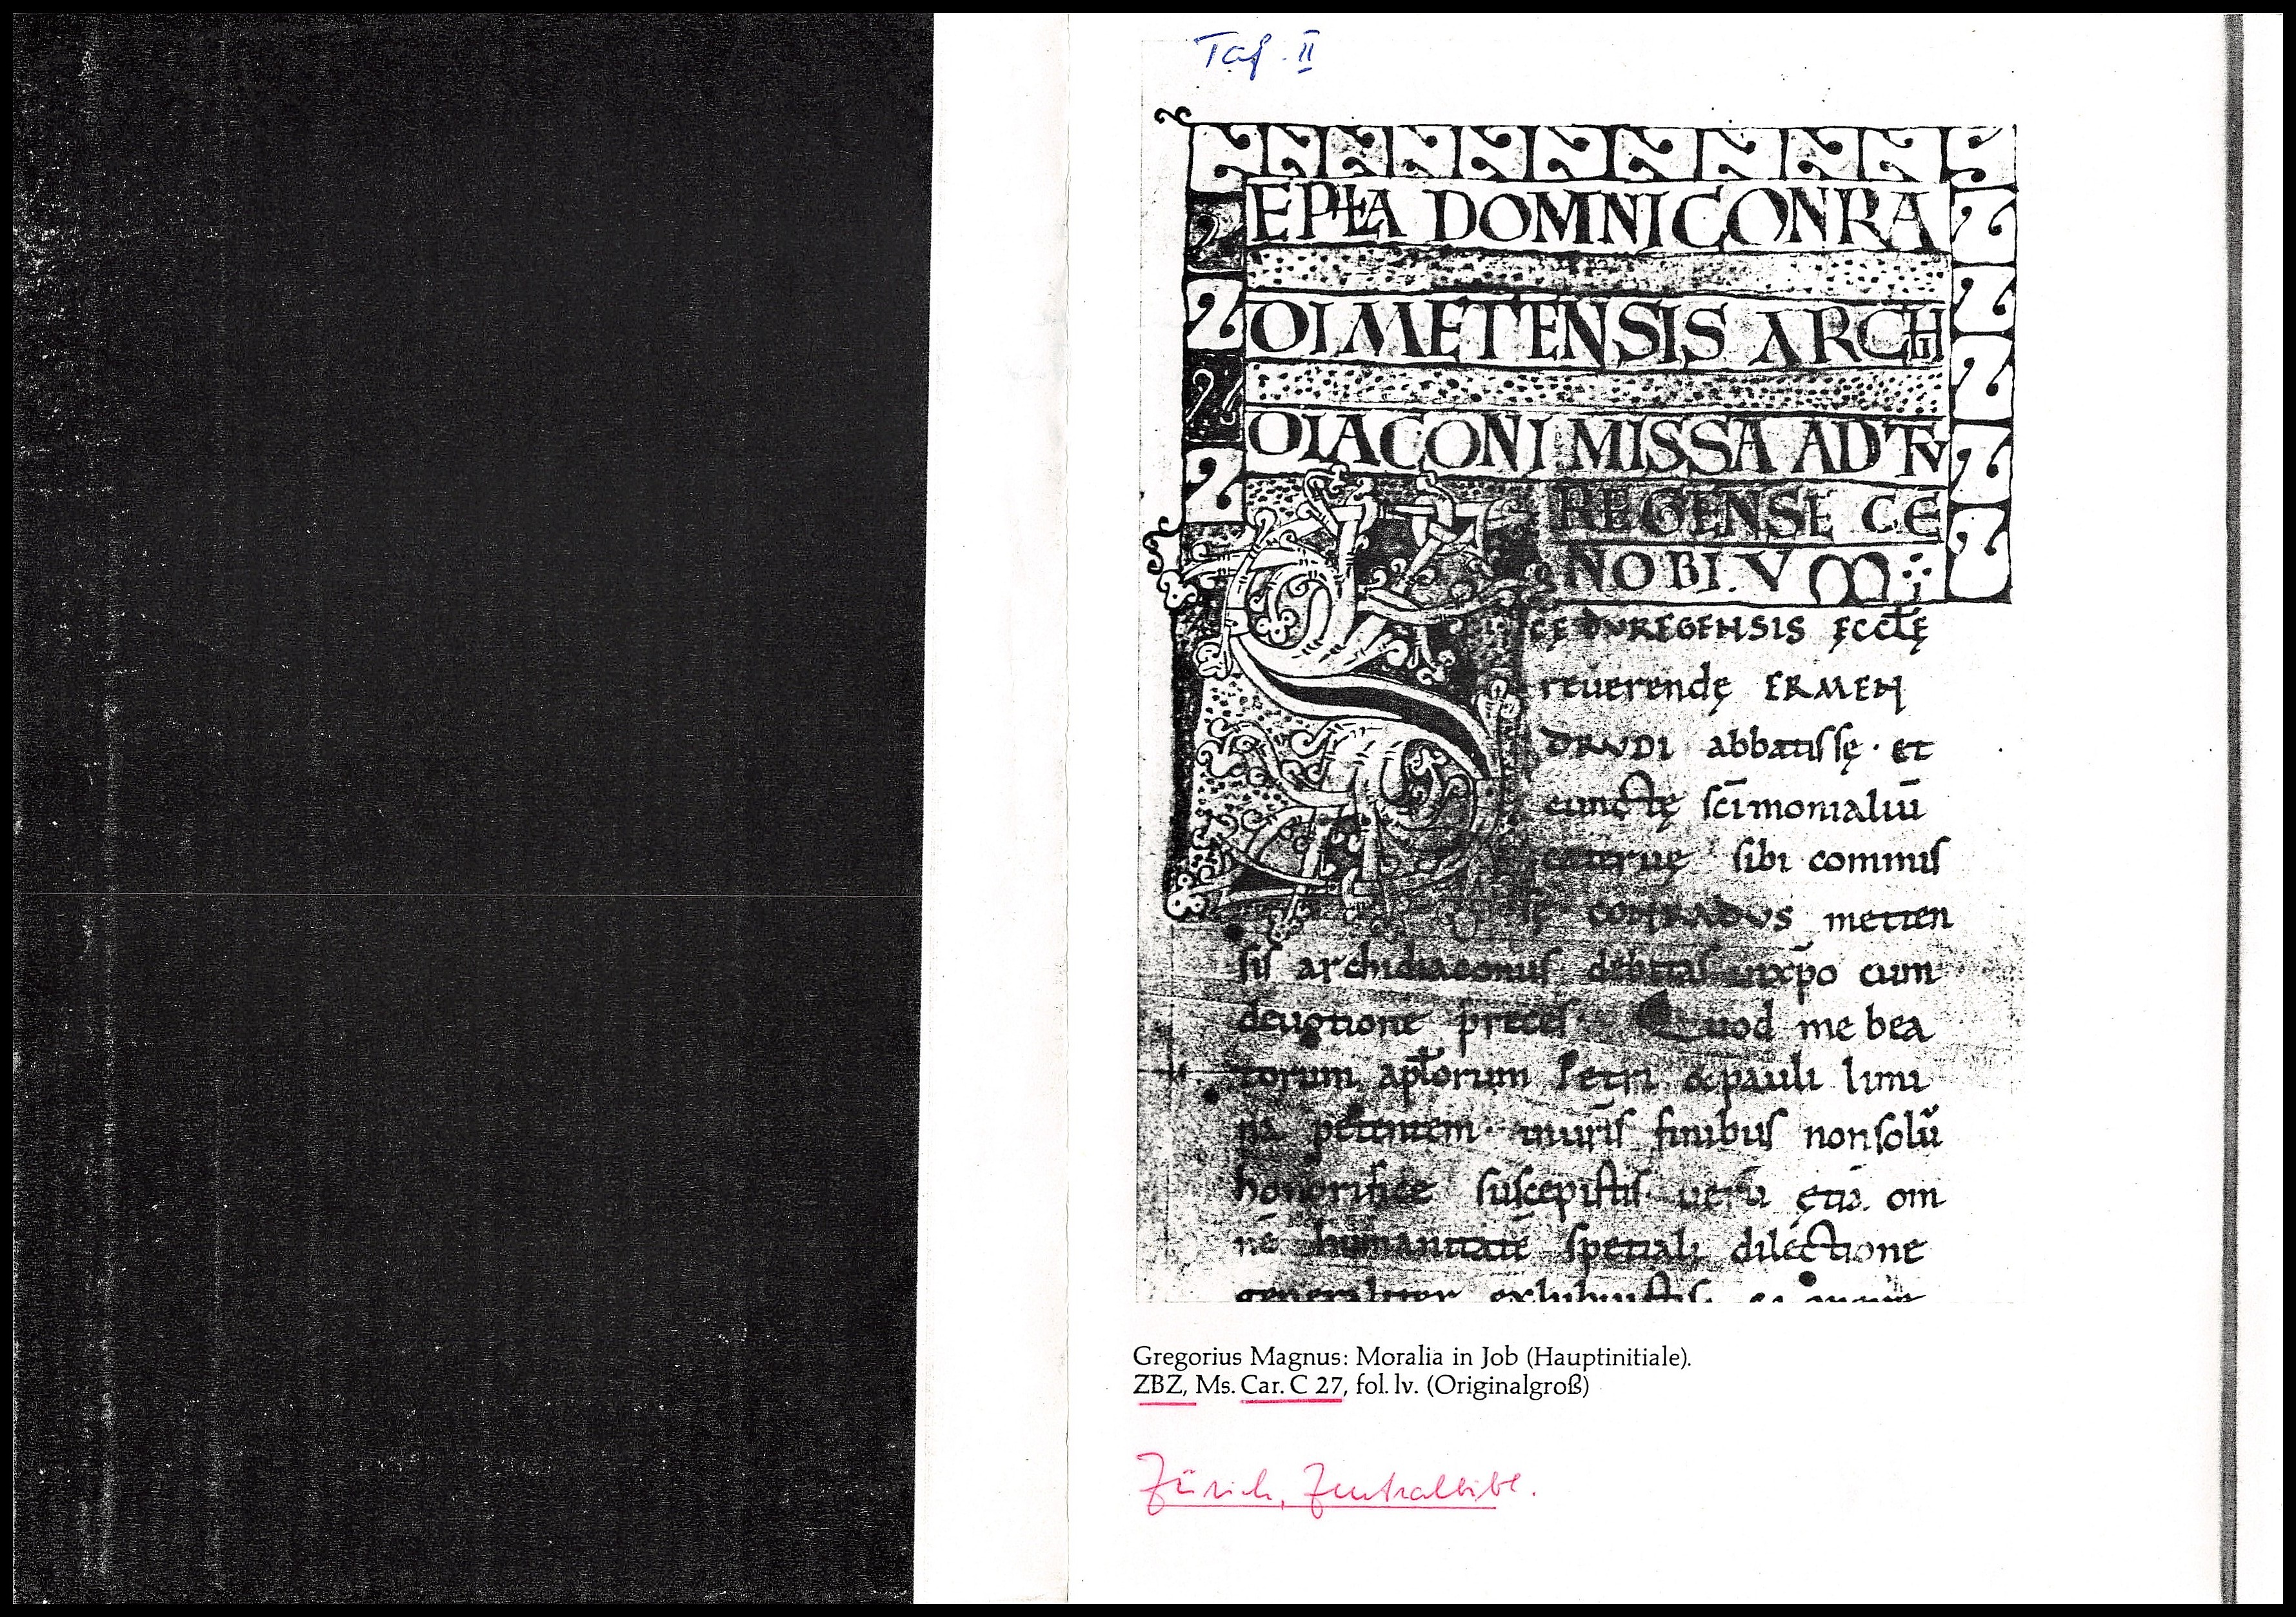 Taf. II
EPLA DOMNI CONRA
DI METENSIS ARCHI
DIACONI MISSA AD TV
REGENSE CE
NOBIVM
CĘ DVREGENSIS ĘCCLĘ
reuerendę ERMEN
DRVDI abbatissę · et
cunctę scīmonialiū
cateruę sibi commis
sę CONRADVS metten
sis archidiaconus debitas inxpo cum
deuotione preces · Quod me bea
torum aplorum Petri & pauli limi
na petentem · inuris finibus nonsolū
honorifice suscepistis uerū ętiā om
nē humanitatē spetiali dilectione
generaliter exhibuistis
Gregorius Magnus: Moralia in Job (Hauptinitiale).
ZBZ, Ms. Car. C 27, fol. lv. (Originalgroß)
Zürich, Zentralbibl.